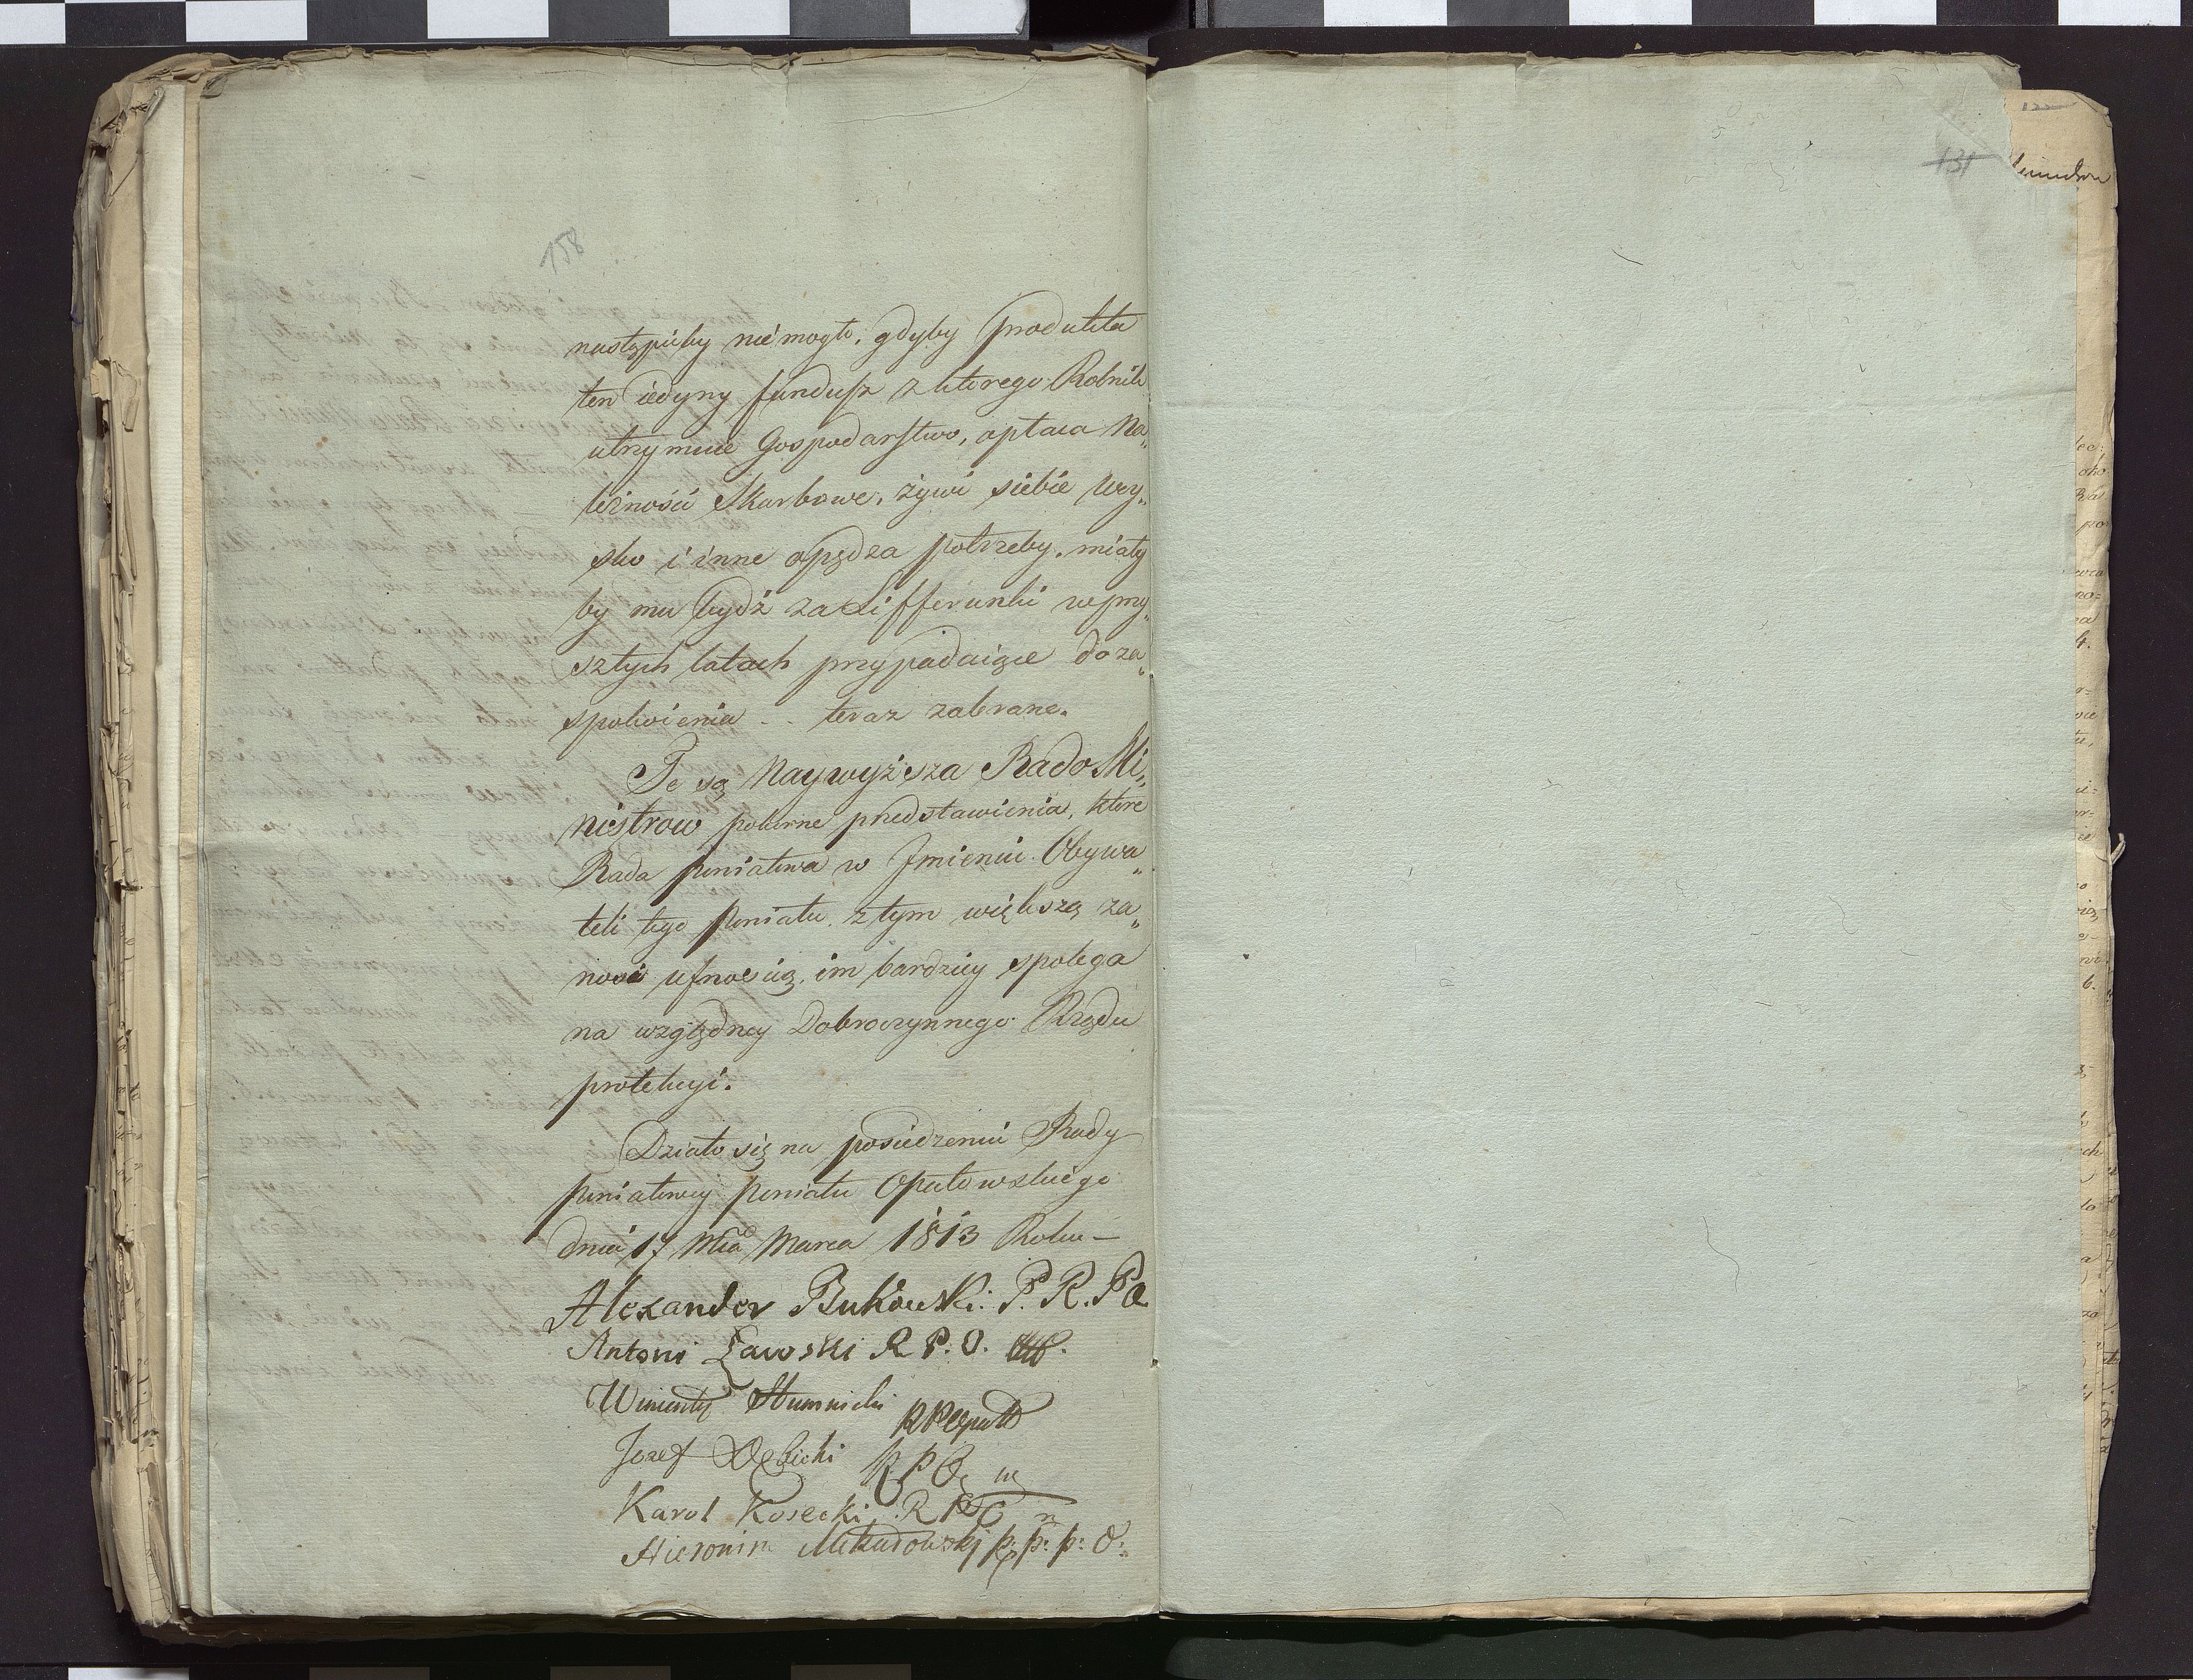 158
nastąpićby nié mogło, gdyby produkta
ten iedyny fundusz z ktorego Rolnik
utrzymuie Gospodarstwo, opłaca Na„
leżności Skarbowe, żywi siebie Woy„
sko i inne opędza potrzeby, miały
by mu bydź za Lifferunki w przy„
szłych latach przypadaiące do za„
spokoienia .. teraz zabrane.
Te są Naywyższa Rado Mi„
nistrow pokorne przedstawienia, które
Rada powiatowa w Jmieniu Obywa„
teli tego Powiatu, z tym większą za„
nosi ufnością, im bardziey spolega
na względney Dobroczynnego Rządu
protekcyi.
Działo się na posiedzeniu Rady
powiatowey powiatu Opatowskiego
dnia 17 Mca Marca 1813 Roku —
Alexander Bukowski. P. R. P O.
Antoni Ławski R P. O.
Wincenty Humnicki R P Opatt
Jozef Dębicki R P O mp
Karol Kosecki R P O
Hieronim p: p: p: O:
131